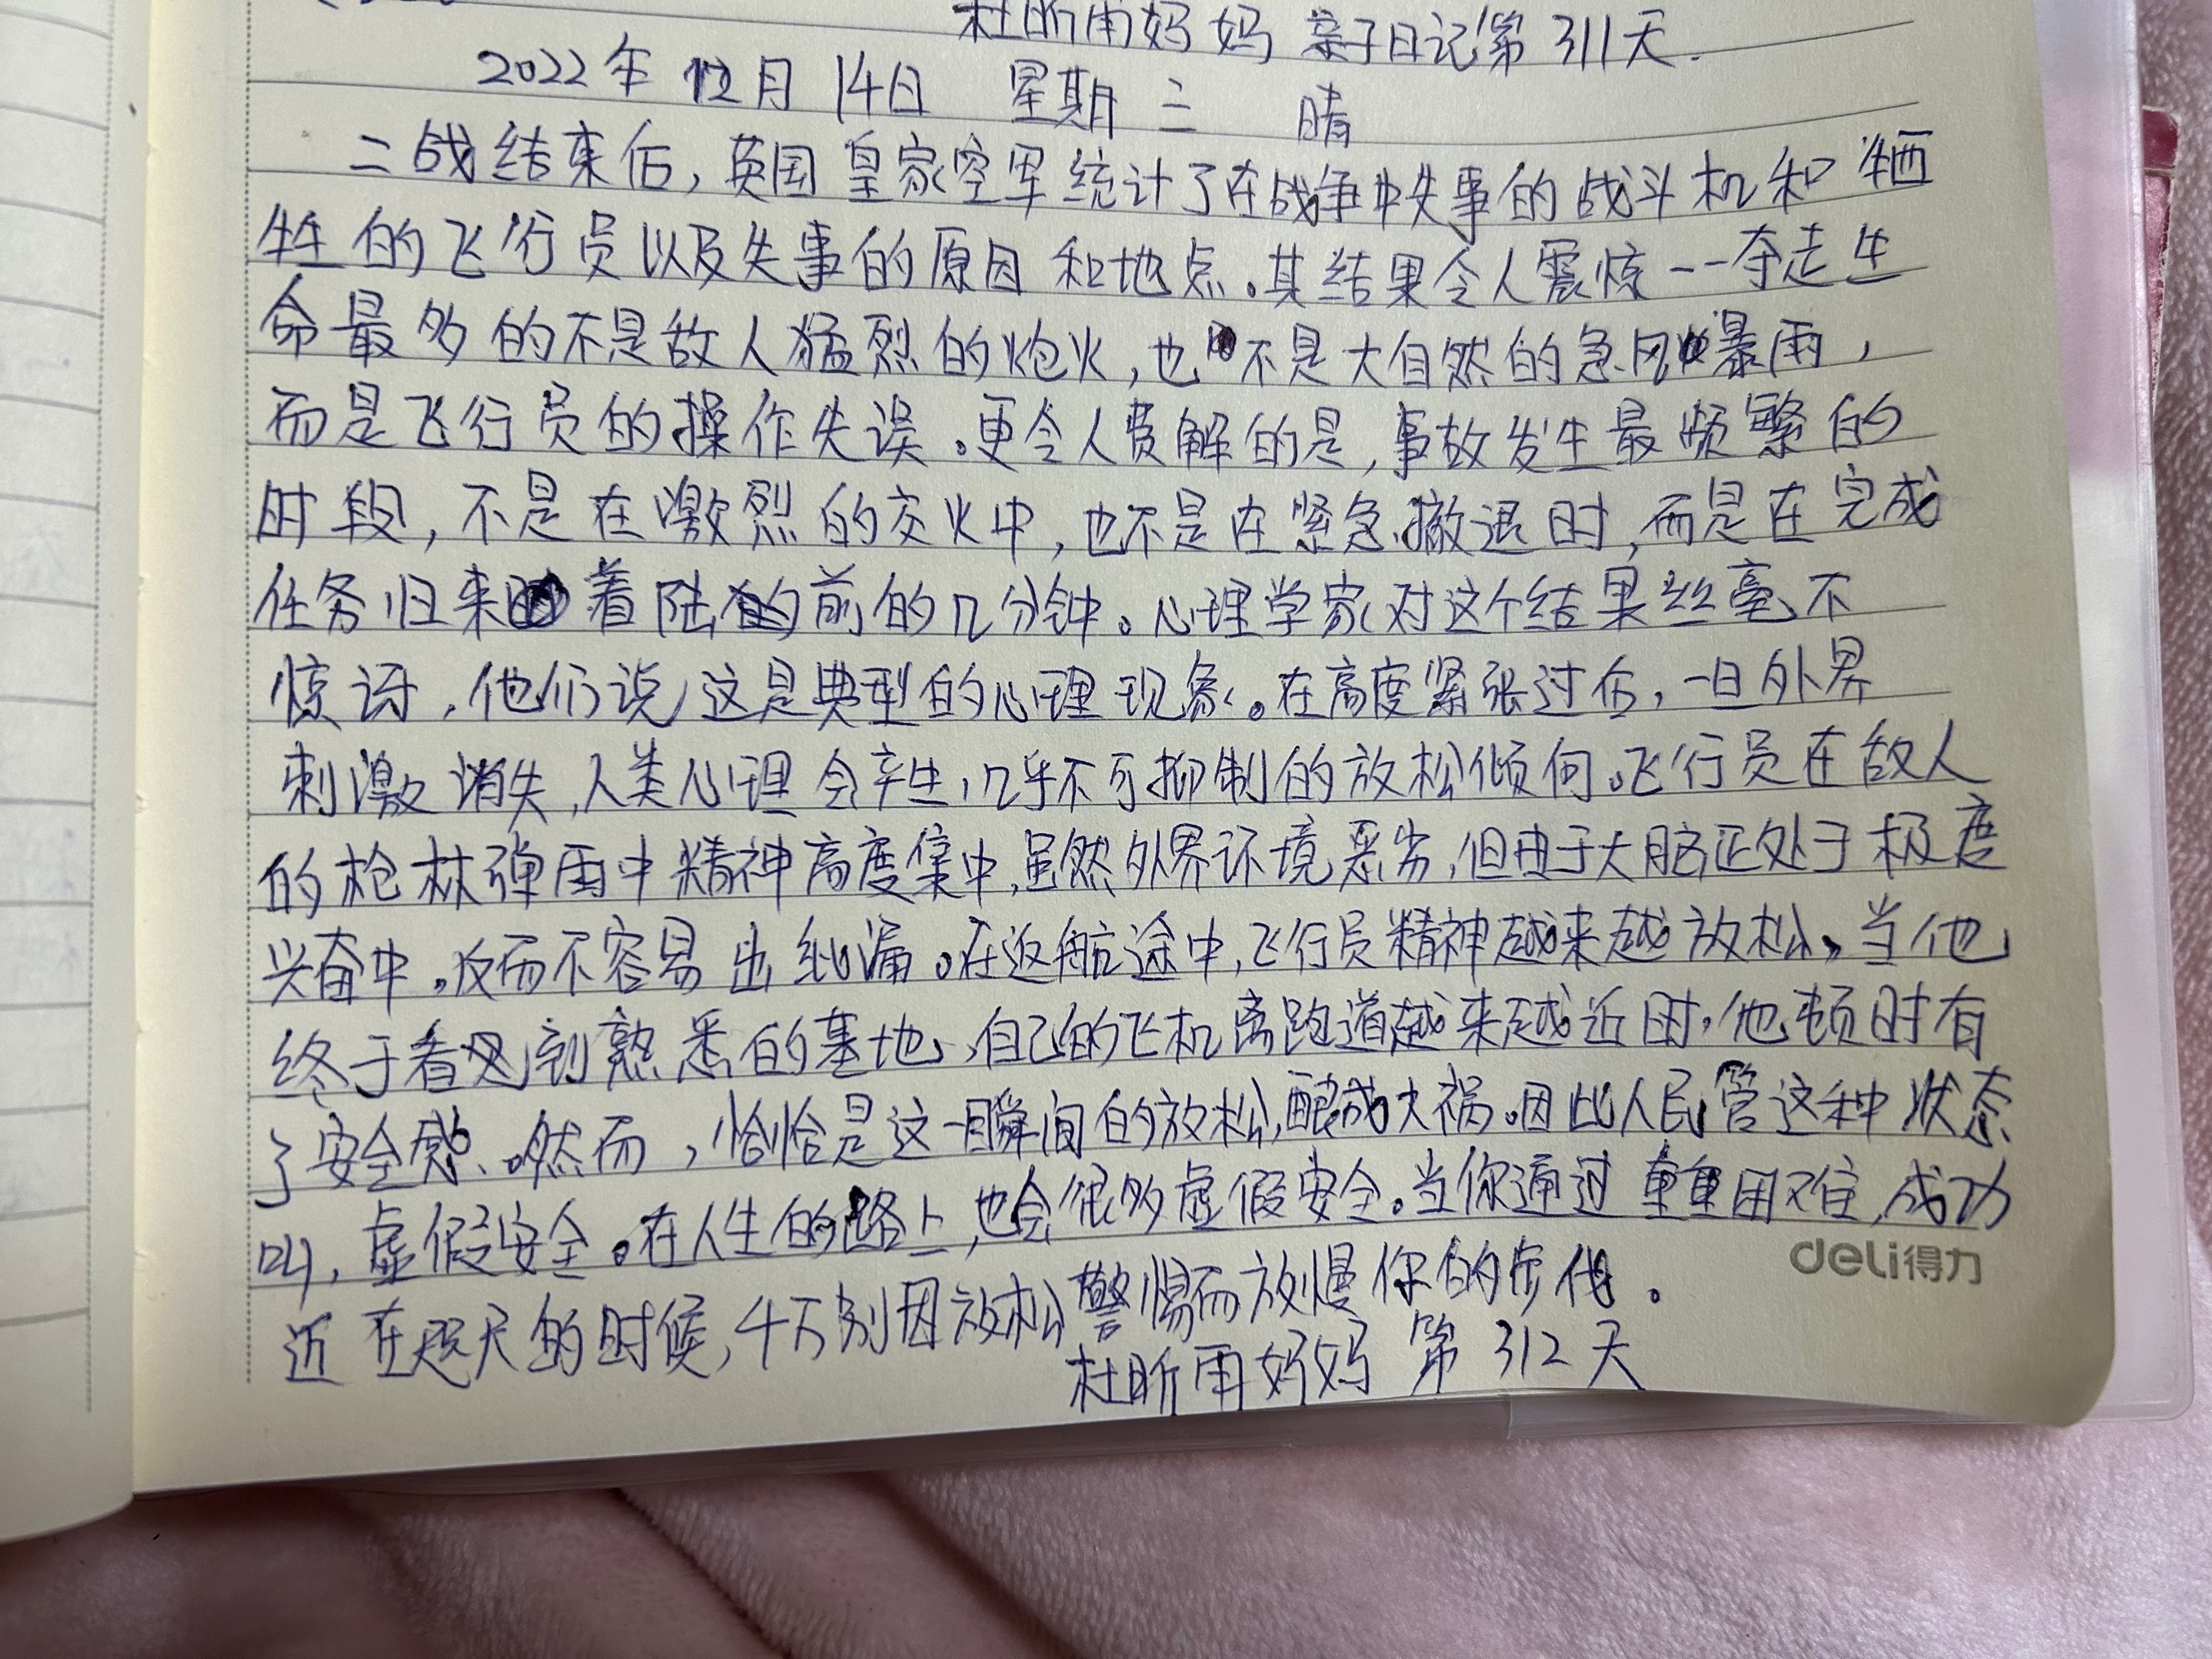 杜昕雨妈妈 亲子日记第311天.
2022年 12月 14日 星期三 晴
二战结束后,英国皇家空军统计了在战争中失事的战斗机和牺
牲的飞行员以及失事的原因和地点。其结果令人震惊--夺走生
命最多的不是敌人猛烈的炮火,也不是大自然的急风暴雨,
而是飞行员的操作失误。更令人费解的是,事故发生最频繁的
时段,不是在激烈的交火中,也不是在紧急撤退时,而是在完成
任务归来着陆前的几分钟。心理学家对这个结果丝毫不
惊讶,他们说这是典型的心理现象。在高度紧张过后,一旦外界
刺激消失,人类心理会产生几乎不可抑制的放松倾向。飞行员在敌人
的枪林弹雨中精神高度集中,虽然外界环境恶劣,但由于大脑正处于极度
兴奋中,反而不容易出纰漏。在返航途中,飞行员精神越来越放松,当他
终于看到熟悉的基地,自己的飞机离跑道越来越近时,他顿时有
了安全感。然而,恰恰是这一瞬间的放松,酿成大祸。因此人民管这种状态
叫,虚假安全。在人生的路上,也会很多虚假安全。当你通过重重困难,成功
近在咫尺的时候,千万别因放松警惕而放慢你的步伐。
杜昕雨妈妈 第312天
deli得力